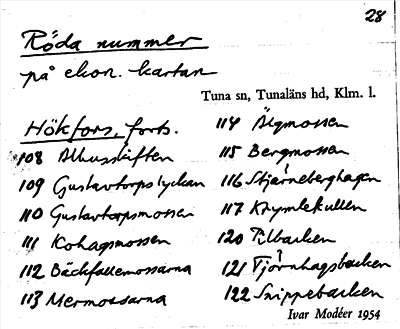 28
Röda nummer
på ekon. kartan
Tuna sn, Tunaläns hd, Klm. l.
Hökfors, forts.
108 Alhusskiften
109 Gustavtorpslyckan
110 Gustavtorpsmossen
111 Kohagsmossen
112 Bäckfallemossarna
113 Mermossarna
114 Älgmossen
115 Bergmossen
116 Stjärneberghagen
117 Krymlekullen
120 Pilbacken
121 Tjörnhagsbacken
122 Snippebacken
Ivar Modéer 1954